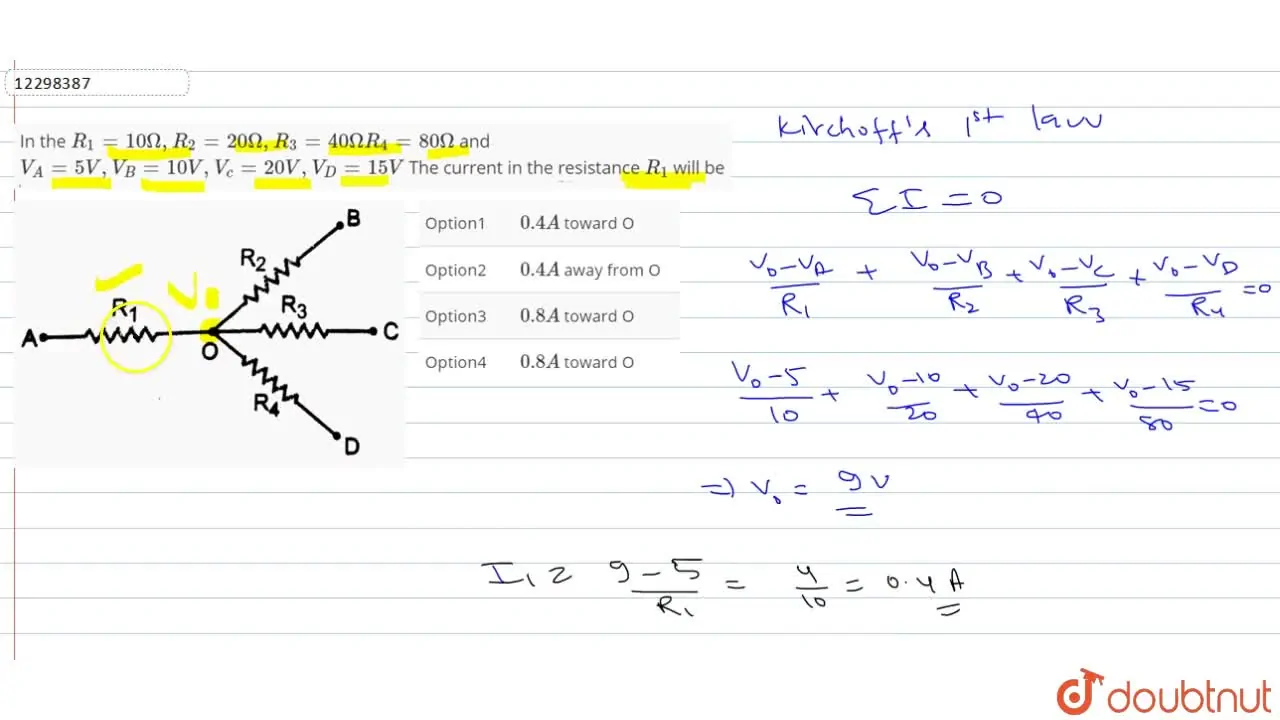 12298387
In the R₁ = 10Ω, R₂ = 20Ω, R₃ = 40ΩR₄ = 80Ω and
V_A = 5V, V_B = 10V, V_c = 20V, V_D = 15V The current in the resistance R₁ will be
Option1 0.4A toward O
Option2 0.4A away from O
Option3 0.8A toward O
Option4 0.8A toward O
B
R₂
V₀
R₁
R₃
A
O
C
R₄
D
Kirchoff's 1st law
ΣI = 0
V₀-V_A/R₁ + V₀-V_B/R₂ + V₀-V_C/R₃ + V₀-V_D/R₄ = 0
V₀-5/10 + V₀-10/20 + V₀-20/40 + V₀-15/80 = 0
⇒ V₀ = 9V
I₁ = 9-5/R₁ = 4/10 = 0.4A
doubtnut